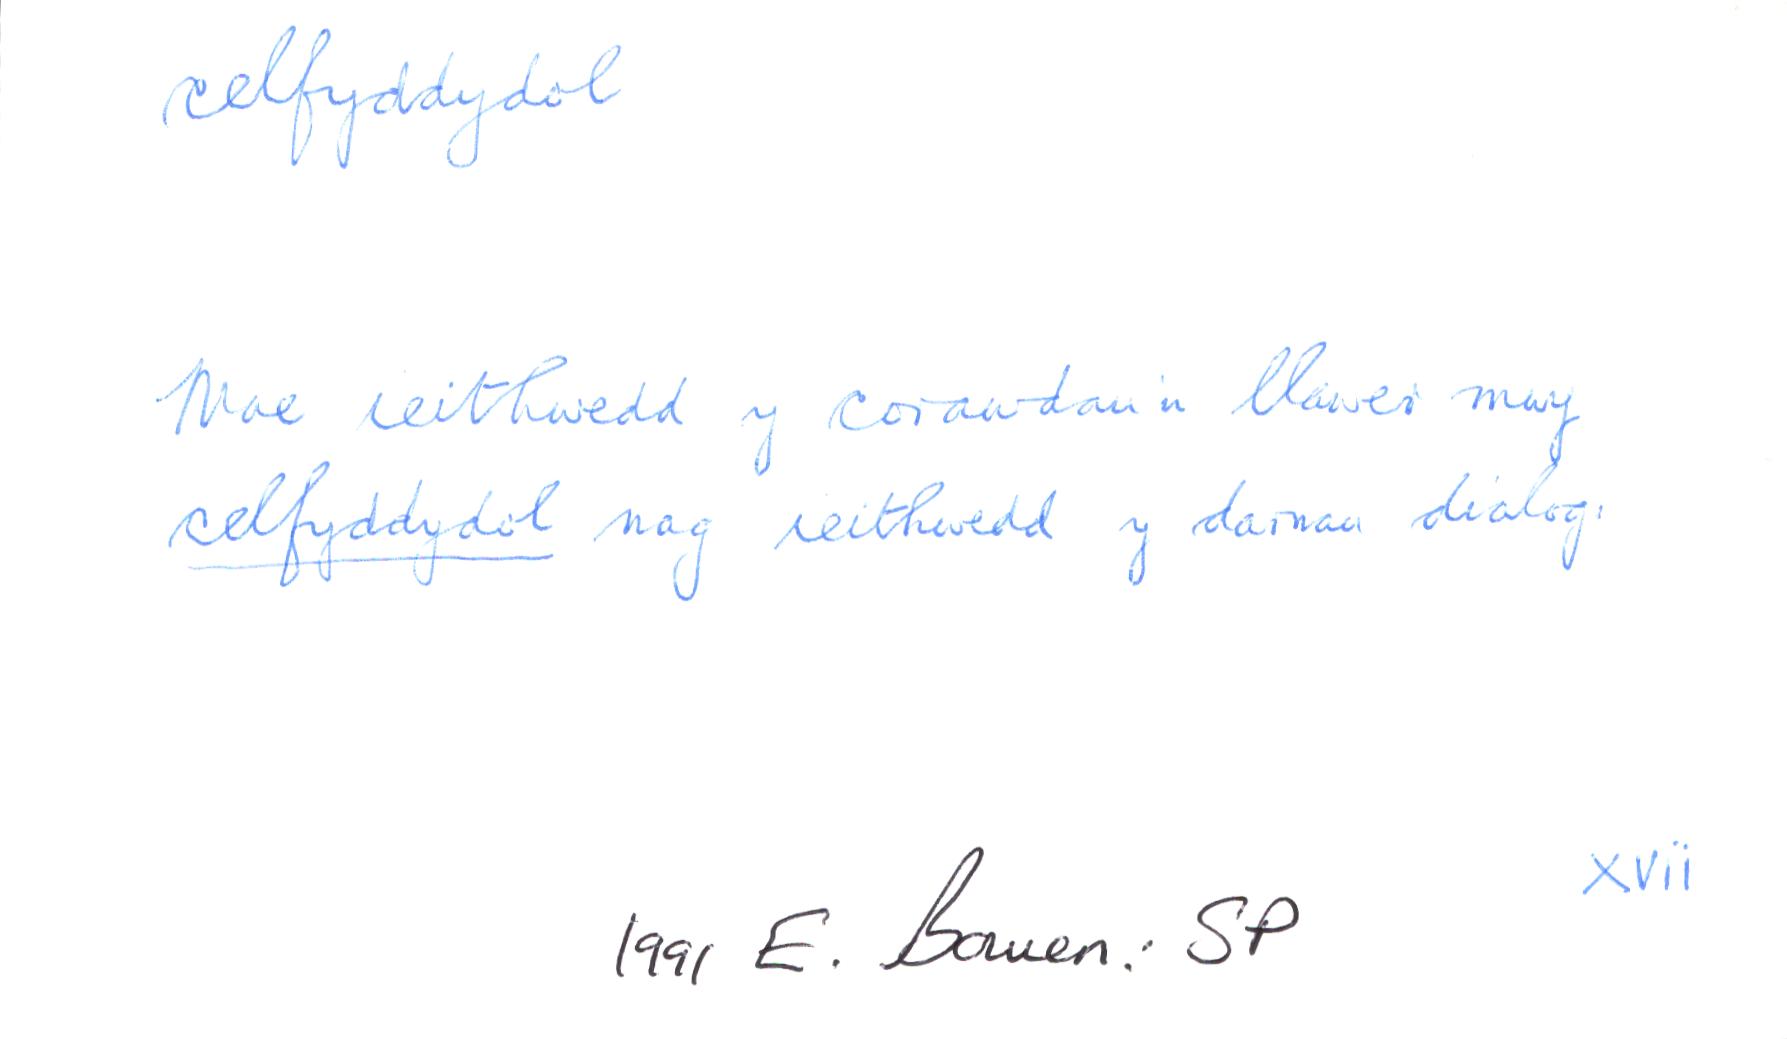 celfyddydol
Mae ieithwedd y corawdau'n llawer mwy
celfyddydol nag ieithwedd y darnau dialog.
xvii
1991 E. Bowen: SP